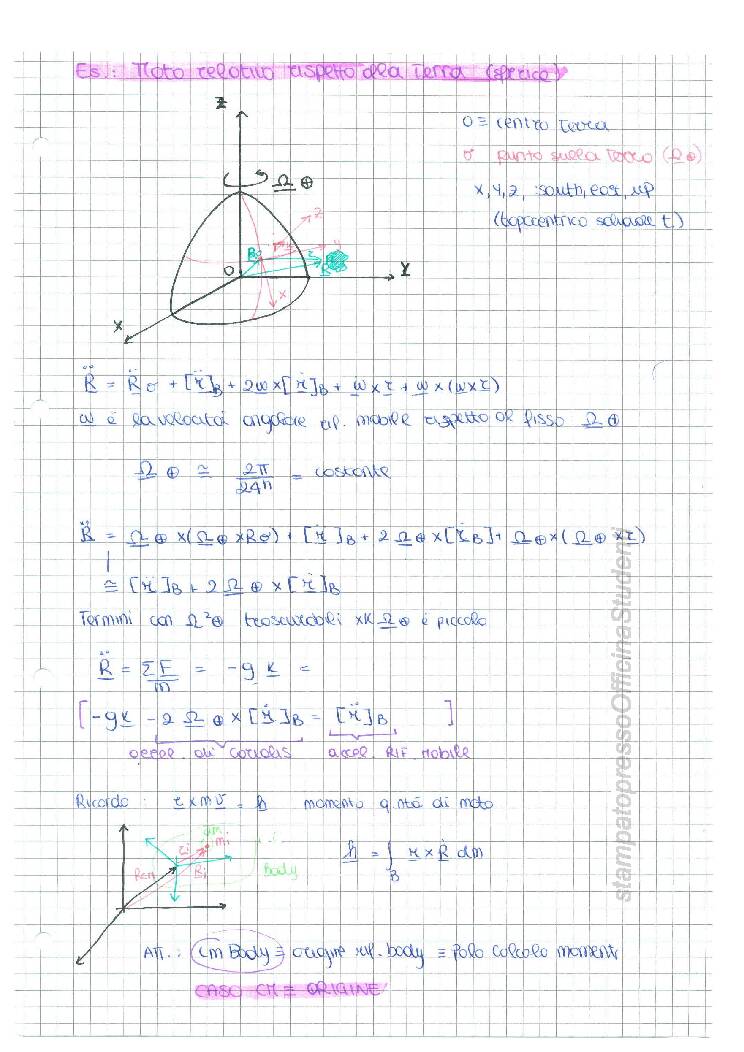 Es.: Moto relativo rispetto alla Terra (sferica)
Z
O ≡ centro Terra
Ω ⊕
σ punto sulla Terra (R⊕)
x, y, z, : south, east, up
(topocentrico solidale t)
z
y
O
Y
x
X
R̈ = R̈σ + [r̈]B + 2ω×[ṙ]B + ω̇×r + ω×(ω×r)
ω è la velocità angolare rif. mobile rispetto al fisso Ω⊕
Ω⊕ ≅ 2π/24h = costante
R̈ = Ω⊕×(Ω⊕×Rσ) + [r̈]B + 2Ω⊕×[ṙB] + Ω⊕×(Ω⊕×r)
≅ [r̈]B + 2Ω⊕×[ṙ]B
Termini con Ω²⊕ trascurabili xk Ω⊕ è piccolo
R̈ = ΣF/m = -g k =
[-gk - 2Ω⊕×[ṙ]B = [r̈]B ]
accel. di Coriolis accel. RIF. mobile
Ricordo: r×mv = h momento q.ntà di moto
dm
ri mi
Rcm Ri Body
h = ∫B r×Ṙ dm
ATT.: cm Body ≡ origine rif. body ≡ Polo calcolo momenti
CASO CM ≡ ORIGINE
stampatopressoOfficinaStudenti